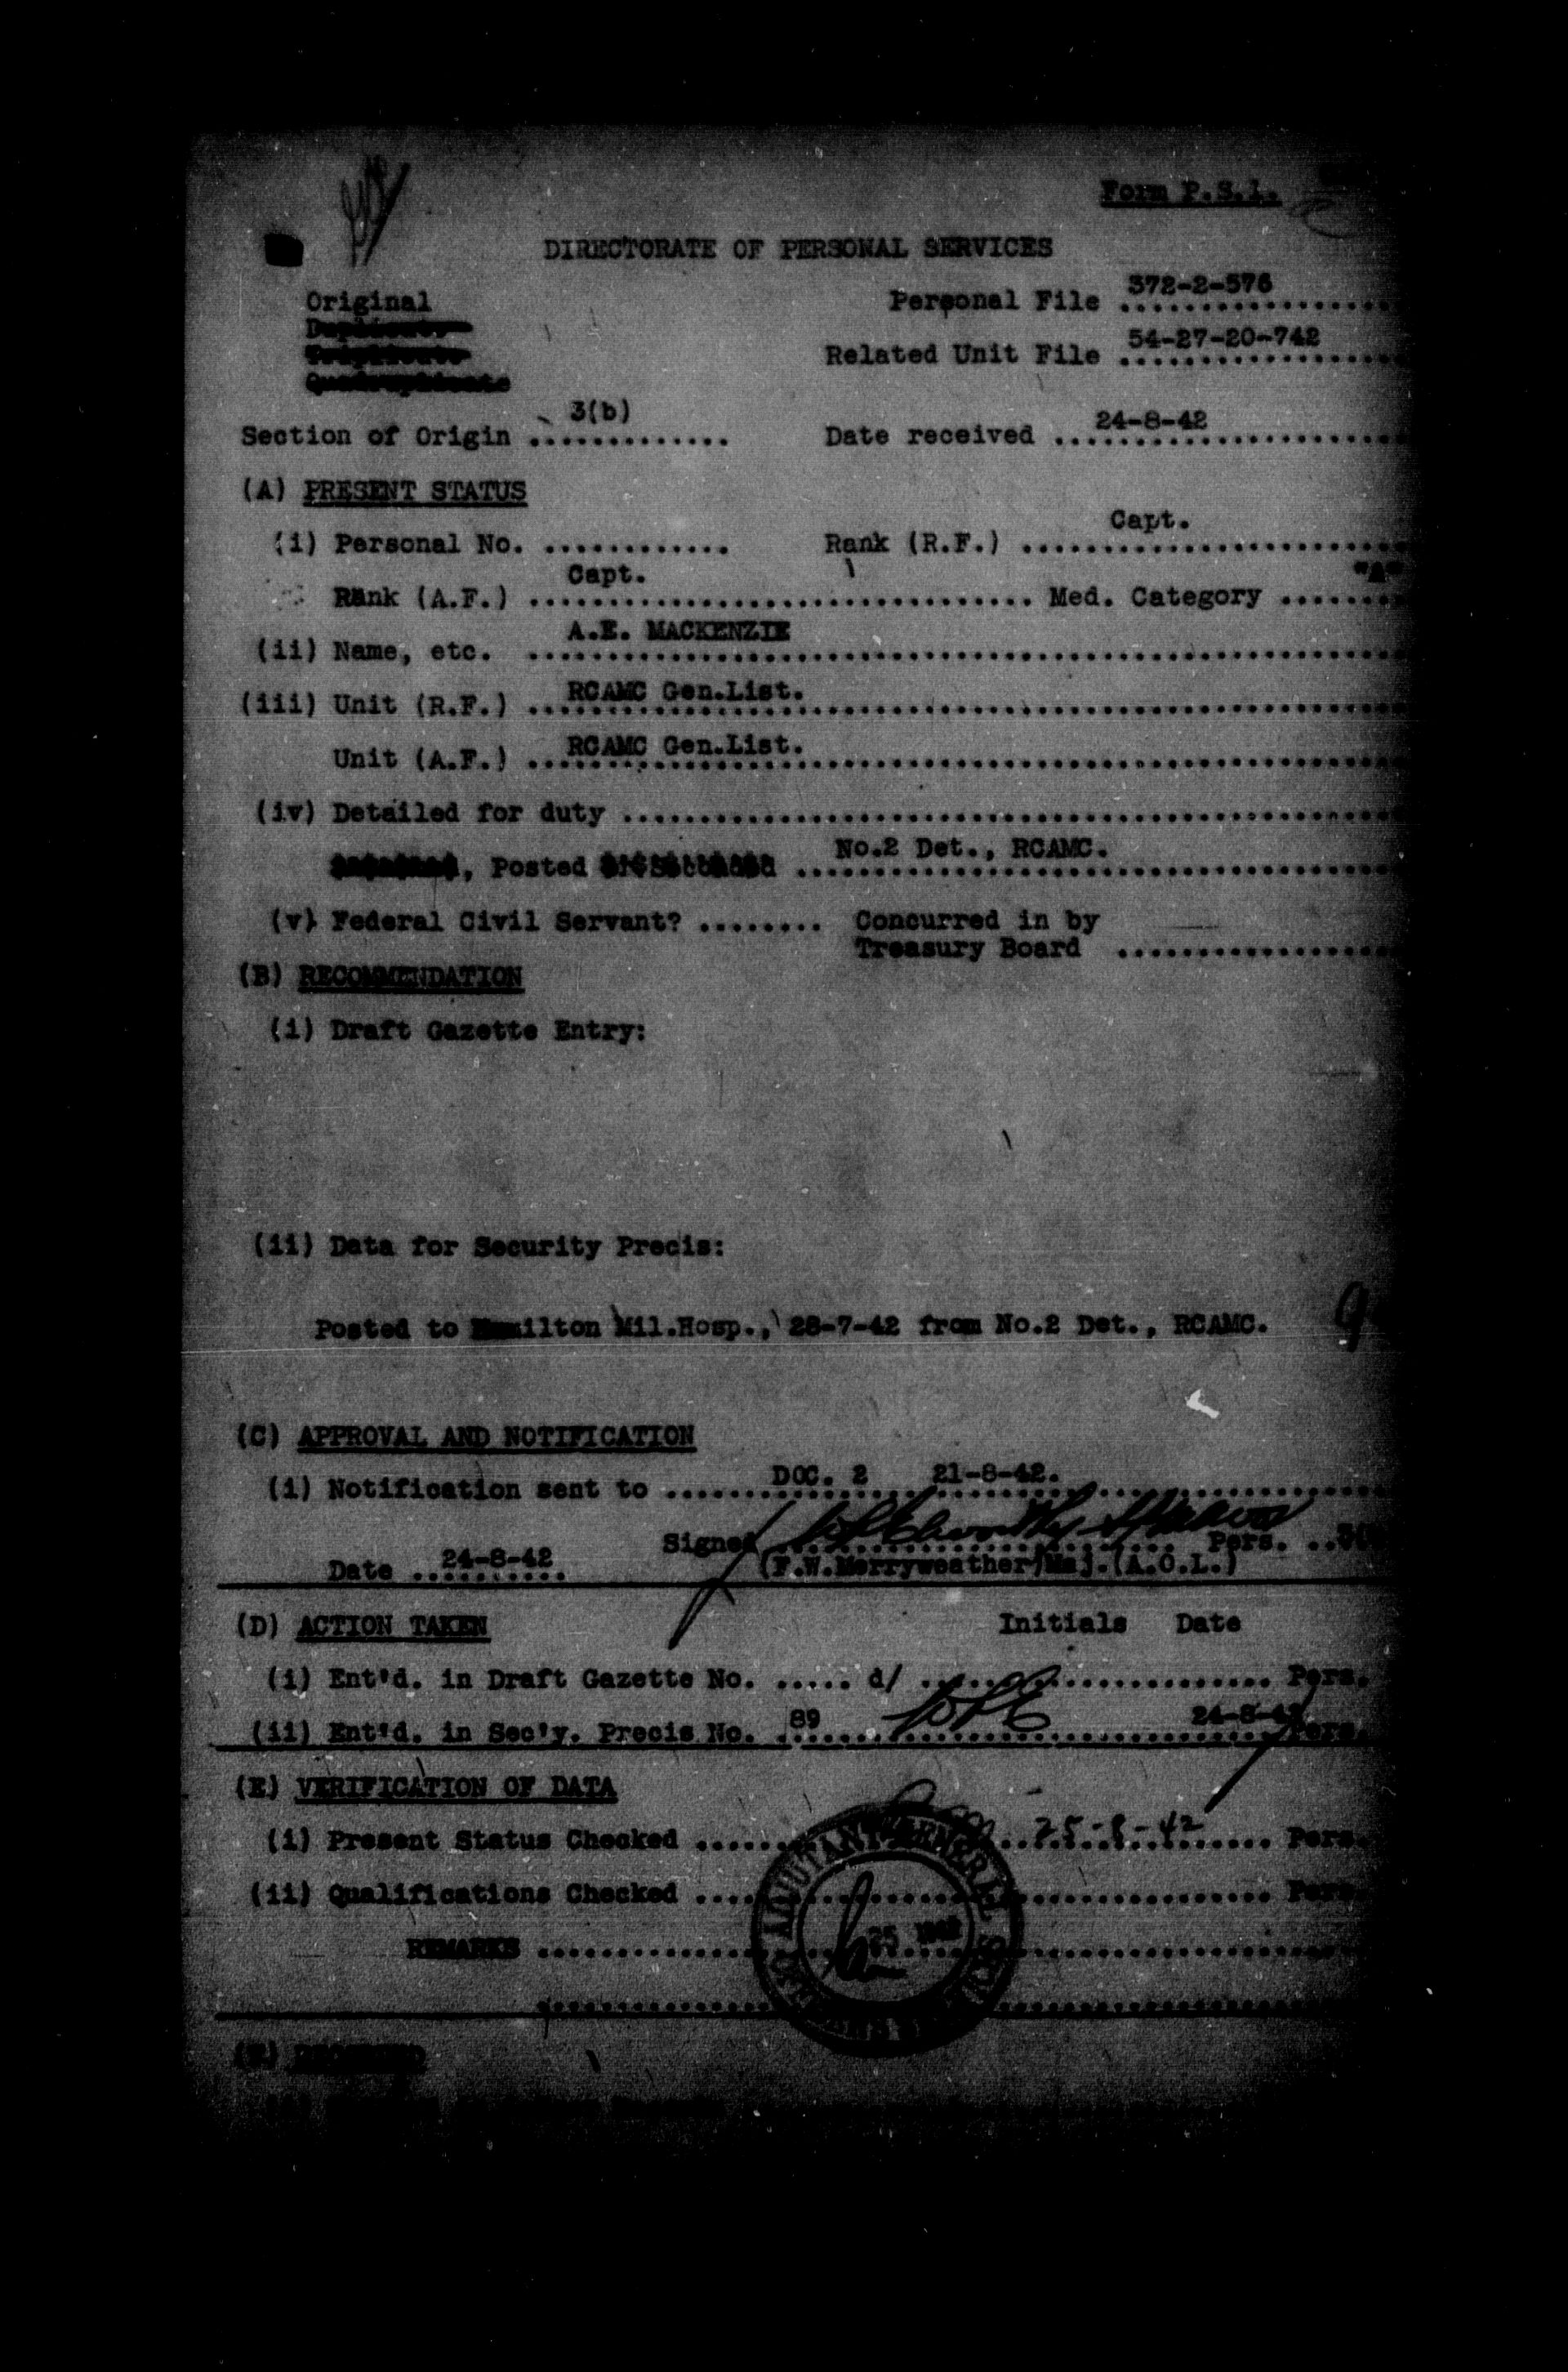 Form P.S.1.
DIRECTORATE OF PERSONAL SERVICES
Original
Personal File 372-2-576
Duplicate
Triplicate
Quadruplicate
Related Unit File 54-27-20-742
Section of Origin 3(b) Date received 24-8-42
(A) PRESENT STATUS
(i) Personal No. ............ Rank (R.F.) Capt.
Rank (A.F.) Capt. Med. Category "A"
(ii) Name, etc. A.E. MACKENZIE
(iii) Unit (R.F.) RCAMC Gen.List.
Unit (A.F.) RCAMC Gen.List.
(iv) Detailed for duty ............
, Posted No.2 Det., RCAMC.
(v) Federal Civil Servant? ........ Concurred in by
Treasury Board ............
(B) RECOMMENDATION
(i) Draft Gazette Entry:
(ii) Data for Security Precis:
Posted to Hamilton Mil.Hosp., 28-7-42 from No.2 Det., RCAMC.
(C) APPROVAL AND NOTIFICATION
(i) Notification sent to DOC. 2 21-8-42.
Date 24-8-42 Signed Pers.
(F.W.Merryweather)Maj.(A.O.L.)
(D) ACTION TAKEN Initials Date
(i) Ent'd. in Draft Gazette No. ..... d/ ............ Pers.
(ii) Ent'd. in Sec'y. Precis No. 89 24-8-42 Pers.
(E) VERIFICATION OF DATA
(i) Present Status Checked 25-8-42 Pers.
(ii) Qualifications Checked ............ Pers.
REMARKS ............
ADJUTANT GENERAL
25 1942